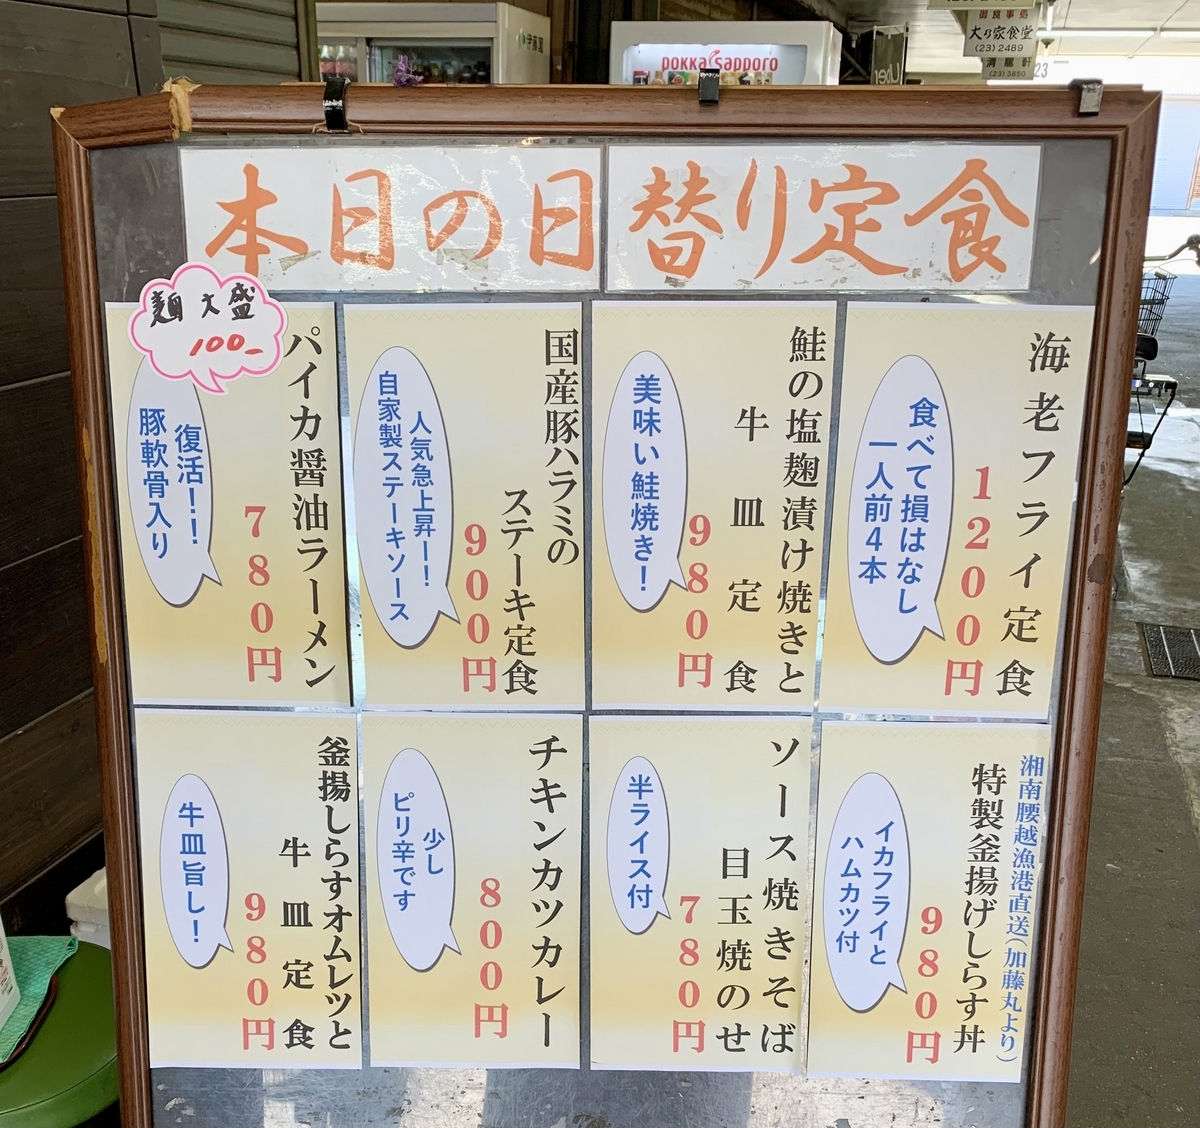 伊藤園
pokka sapporo
Uber
御食事処
大乃家食堂
(23)2489
清龍軒
(23)3850
23
本日の日替り定食
海老フライ定食
1200円
食べて損はなし
一人前4本
鮭の塩麹漬け焼きと
牛皿定食
980円
美味い鮭焼き！
国産豚ハラミの
ステーキ定食
900円
人気急上昇ー！！
自家製ステーキソース
麺大盛
100-
パイカ醤油ラーメン
780円
復活！！
豚軟骨入り
湘南腰越漁港直送（加藤丸より）
特製釜揚げしらす丼
980円
イカフライと
ハムカツ付
ソース焼きそば
目玉焼のせ
780円
半ライス付
チキンカツカレー
800円
少し
ピリ辛です
釜揚しらすオムレツと
牛皿定食
980円
牛皿旨し！